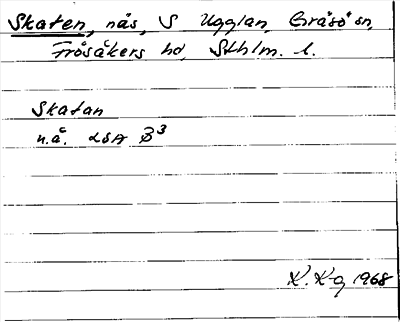 Skaten, näs, S Ugglan, Gräsö sn,
Frösåkers hd, Sthlm. l.
Skatan
n.å. LSA B³
K. K-g, 1968